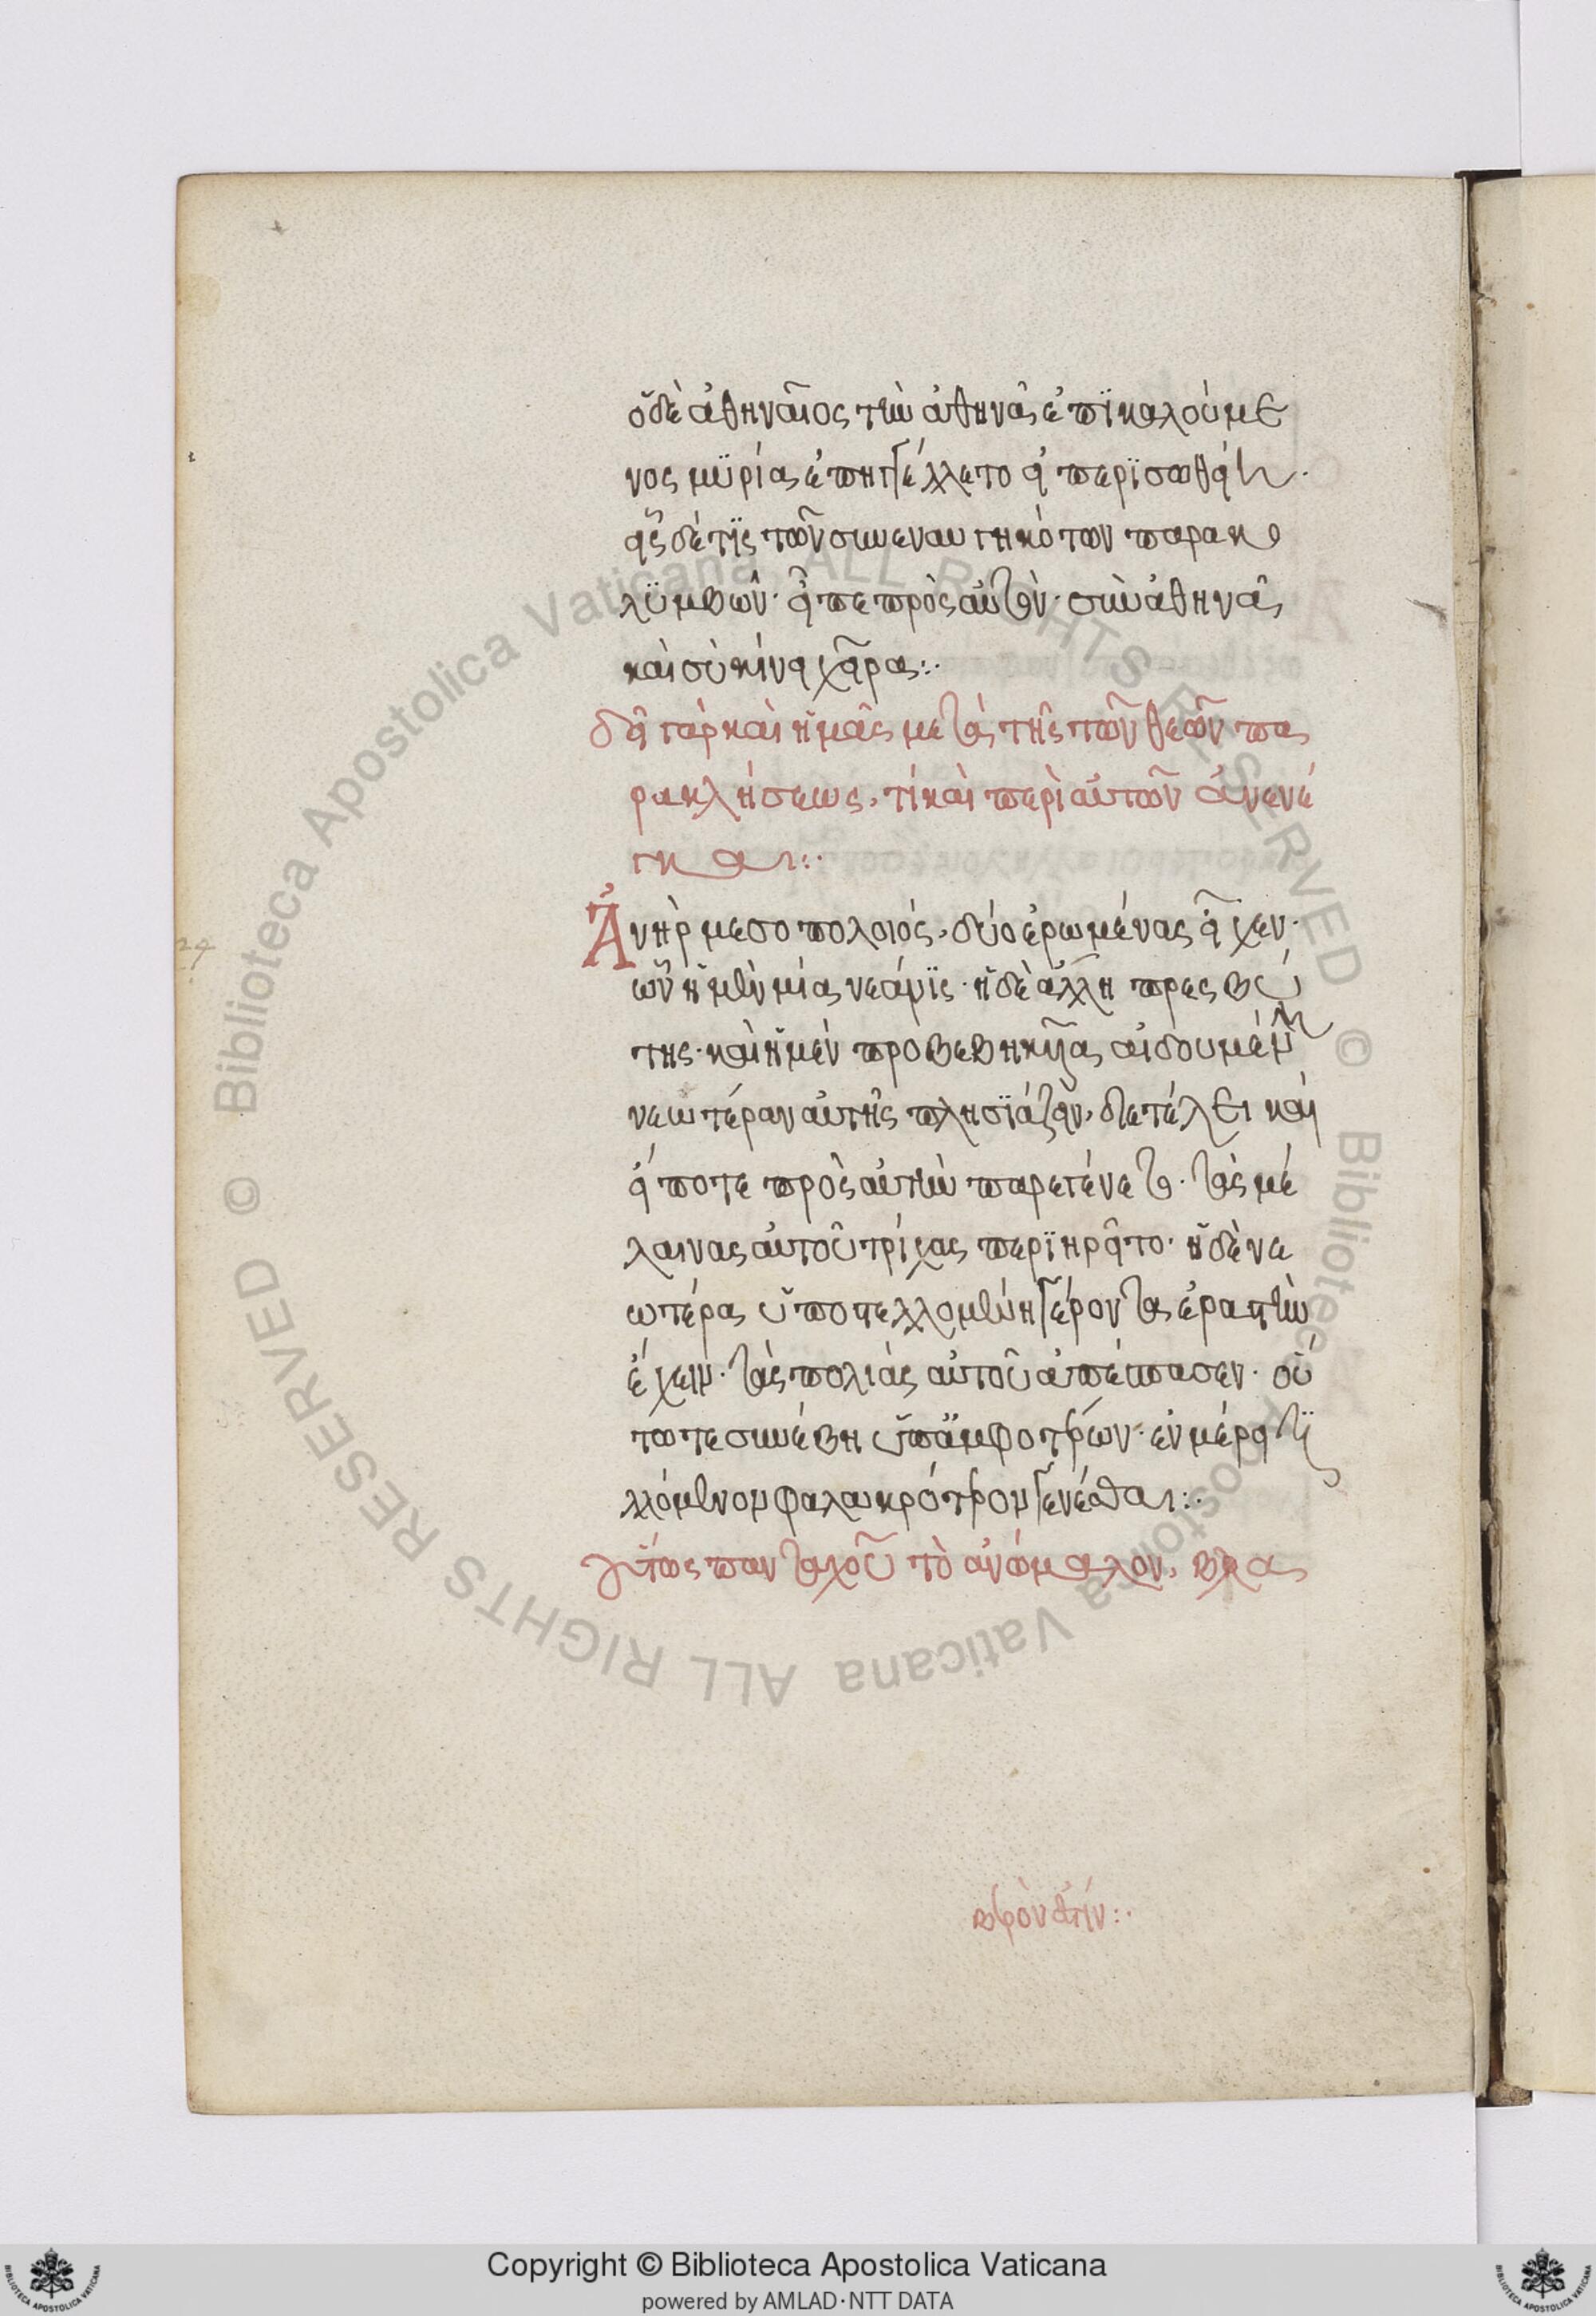 ὁ δὲ ἀθηναῖος τὴν ἀθηνᾶν ἐπϊκαλούμε
νος μϋρίας ἐπηγγέλλετο εἰ περϊσωθείη·
εἷς δέ τϊς τῶν συνεναυηγηκότων παρακο
λϋμβῶν· εἶπε πρὸς αὐτόν· σὺν ἀθηνᾶ
καὶ σὺ κίνει χεῖρας:·
δεῖ γὰρ καὶ ἡμᾶς μετὰ τῆς τῶν θεῶν πα
ρακλήσεως, τί καὶ περὶ αὐτῶν ἀνενέ
γκαι:·
Ἀνὴρ μεσοπολοιός, δύο ἐρωμένας εἶχεν·
ὧν ἡ μὲν μία νεάνϊς· ἡ δὲ ἄλλη πρεσβύ
της· καὶ ἡ μὲν προβεβηκυῖα αἰδουμένη
νεωτέραν αὐτῆς πλησϊάζειν, διετέλει καὶ
εἴ ποτε πρὸς αὐτὴν παρεγένετο· τὰς με
λαινας αὐτοῦ τρίχας περϊηρεῖτο· ἡ δὲ νε
ωτέρα ὑποτελλομένη γέροντα ἐραστὴν
ἔχειν· τὰς πολιὰς αὐτοῦ ἀπέσπασεν· οὕ
τω τε συνέβη ὑπ' ἀμφοτέρων· ἐν μέρει τϊ
λλόμενον φαλακρότερον γενέσθαι:·
οὕτως πανταχοῦ τὸ ἀνώμαλον, βλα
βερόν ἐστίν:·
Copyright © Biblioteca Apostolica Vaticana
powered by AMLAD·NTT DATA
© Biblioteca Apostolica Vaticana ALL RIGHTS RESERVED © Biblioteca Apostolica Vaticana ALL RIGHTS RESERVED